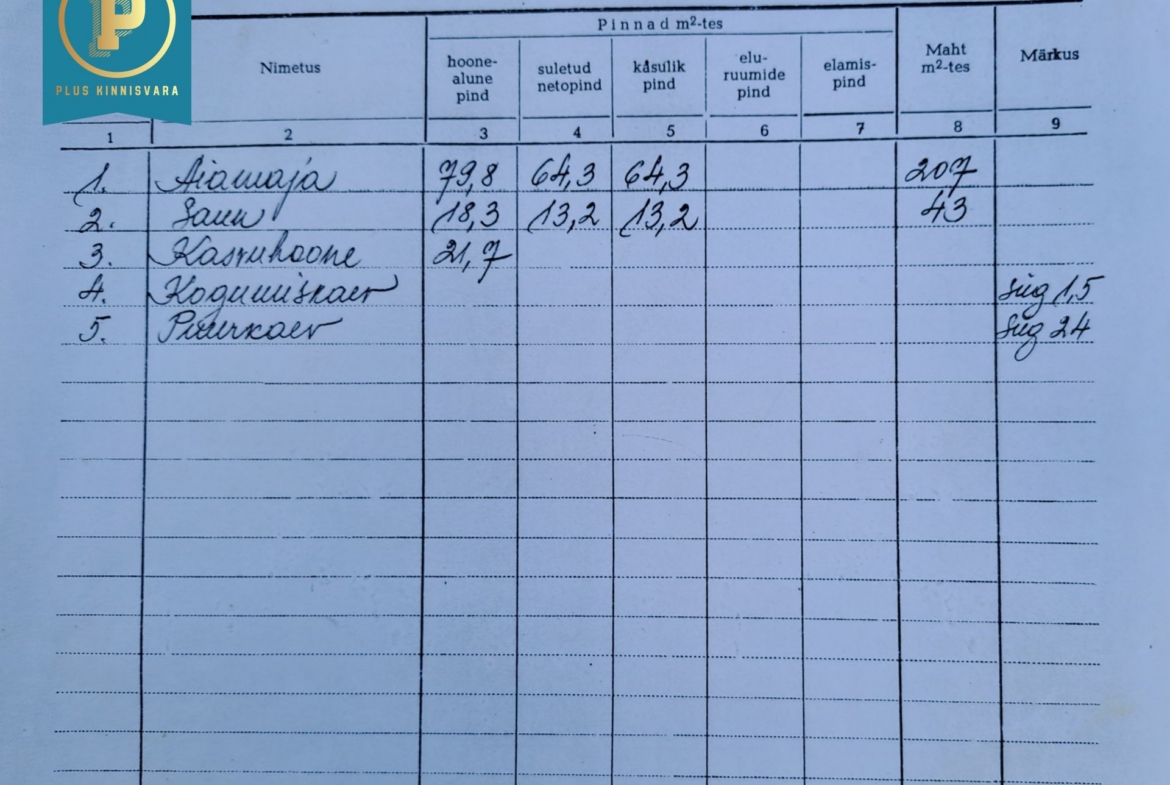 P
PLUS KINNISVARA
Pinnad m²-tes
Nimetus
hoone-
alune
pind
suletud
netopind
kåsulik
pind
elu-
ruumide
pind
elamis-
pind
Maht
m²-tes
Märkus
1 2 3 4 5 6 7 8 9
1. Aiamaja 79,8 64,3 64,3 207
2. Saun 18,3 13,2 13,2 43
3. Kasvuhoone 21,7
4. Kogumiskaev süg 1,5
5. Puurkaev süg 24